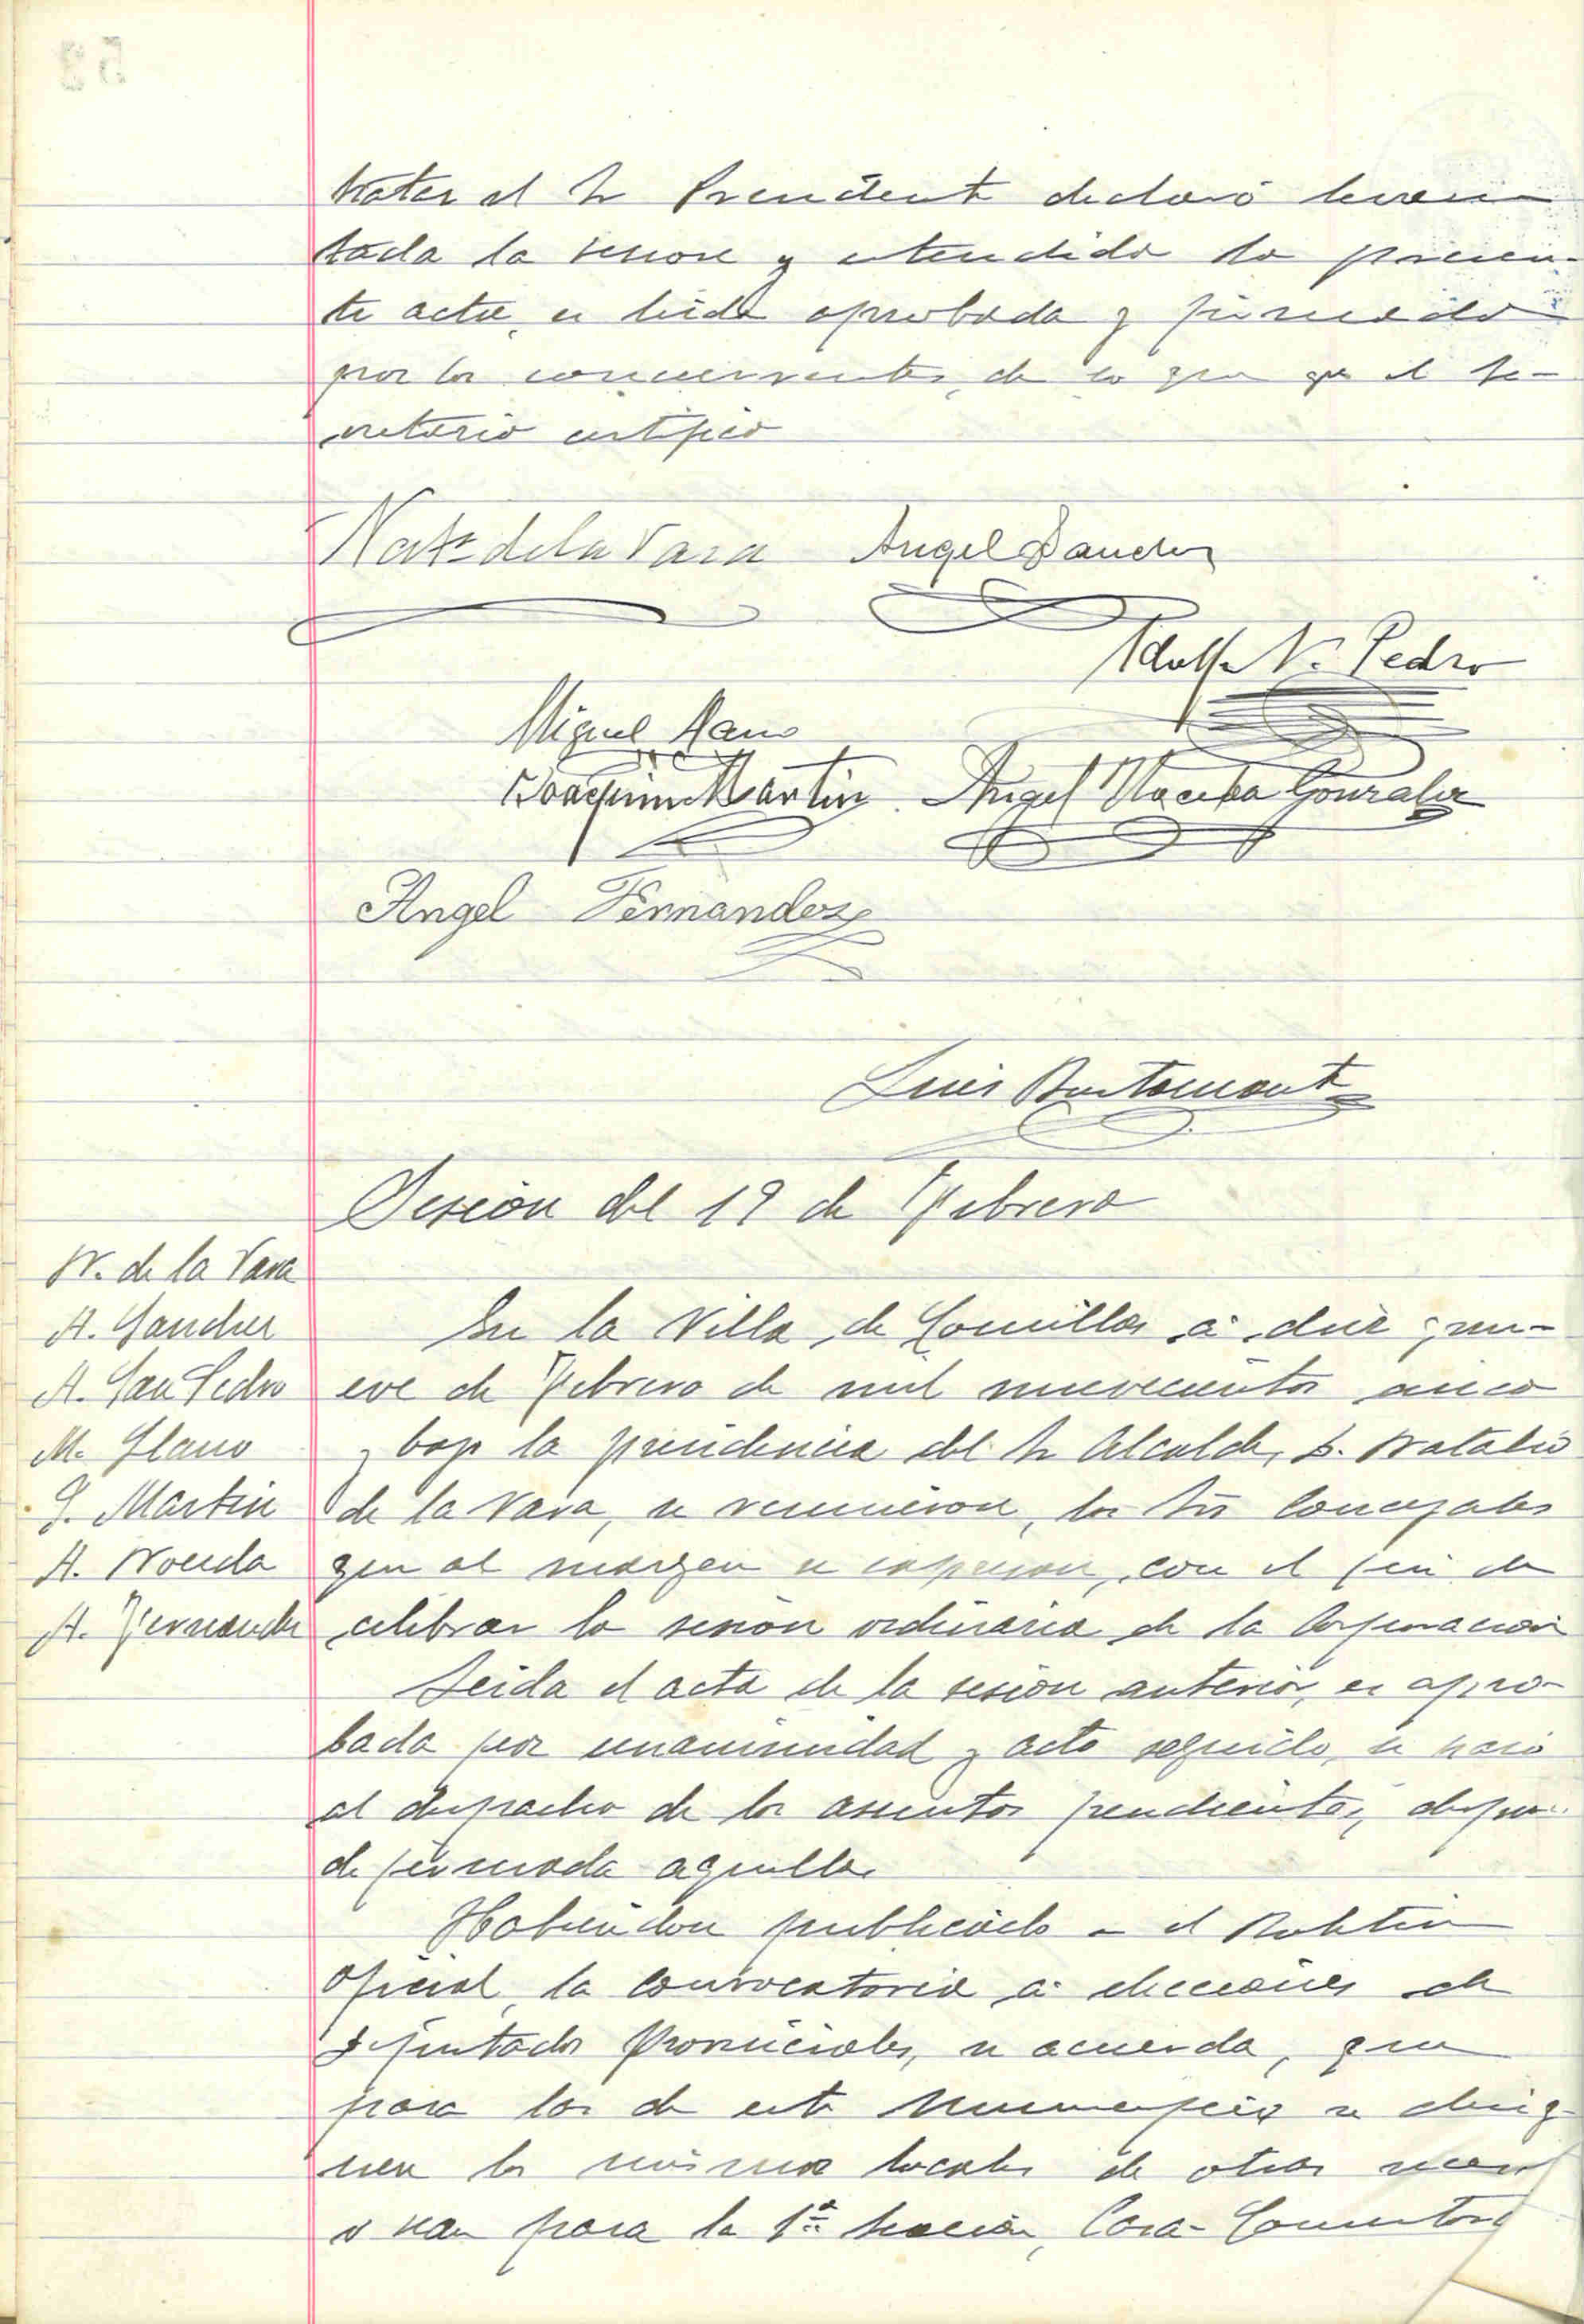 tratar el Sr Presidente declaró levan-
tada la sesion y estendida la presen-
te acta, es leida aprobada y firmada
por los concurrentes, de lo que yo el Se-
cretario certifico
Nat.º de la Vara Angel Sanchez
Adolfo S. Pedro
Miguel Llano
Joaquin Martin Angel Noceda Gonzalez
Angel Fernandez
Luis
Sesión del 19 de Febrero
N. de la Vara
A. Sanchez
A. San Pedro
M. Llano
J. Martin
A. Noceda
A. Fernandez
En la Villa de Comillas á diez y nu-
eve de Febrero de mil novecientos cinco
y bajo la presidencia del Sr Alcalde, D. Natalio
de la Vara, se reunieron, los Srs Concejales
que al margen se espresan, con el fin de
celebrar la sesión ordinaria de la Corporación
Leida el acta de la sesión anterior, es apro-
bada por unanimidad y acto seguido, se pasó
al despacho de los asuntos pendientes, despues
de firmada aquella.
Habiendose publicado en el Boletin
Oficial, la convocatoria á elecciones de
Diputados Provinciales, se acuerda, que
para las de este Municipio se desig-
nen los mismos locales de otras veces
o sean para la 1ª Sección, Casa-Consistorial